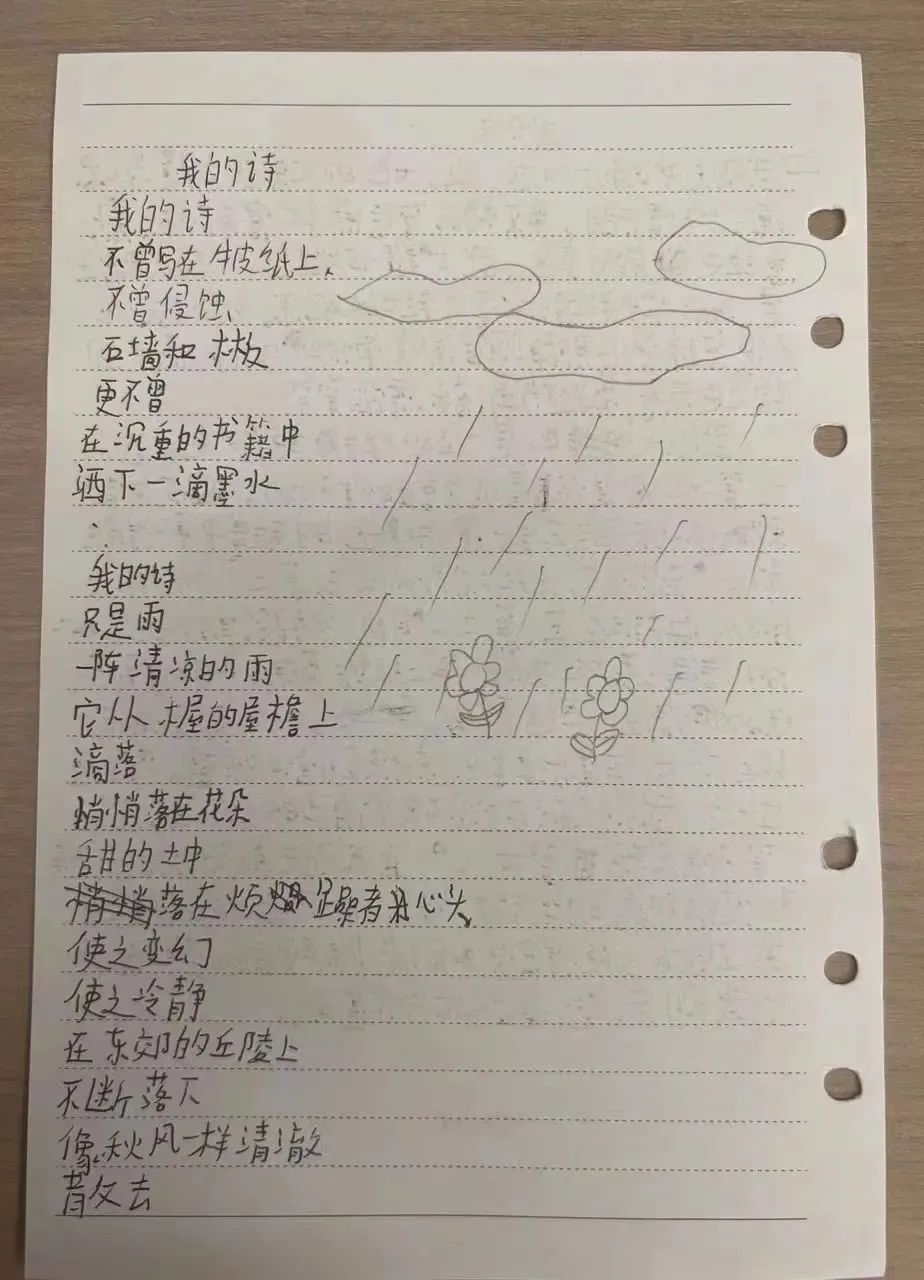 我的诗
我的诗
不曾写在牛皮纸上,
不曾侵蚀,
石墙和木板
更不曾
在沉重的书籍中
洒下一滴墨水
我的诗
只是雨
一阵清凉的雨
它从木屋的屋檐上
滴落
悄悄落在花朵
甜的土中
落在烦躁者心头,
使之变幻
使之冷静
在东郊的丘陵上
不断落下
像秋风一样清澈
散去